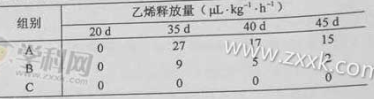 组别 乙烯释放量(μL·kg⁻¹·h⁻¹)
20 d 35 d 40 d 45 d
A 0 27 17 15
B 0 9 5 2
C 0 0 0 0
学科网
www.zxxk.com